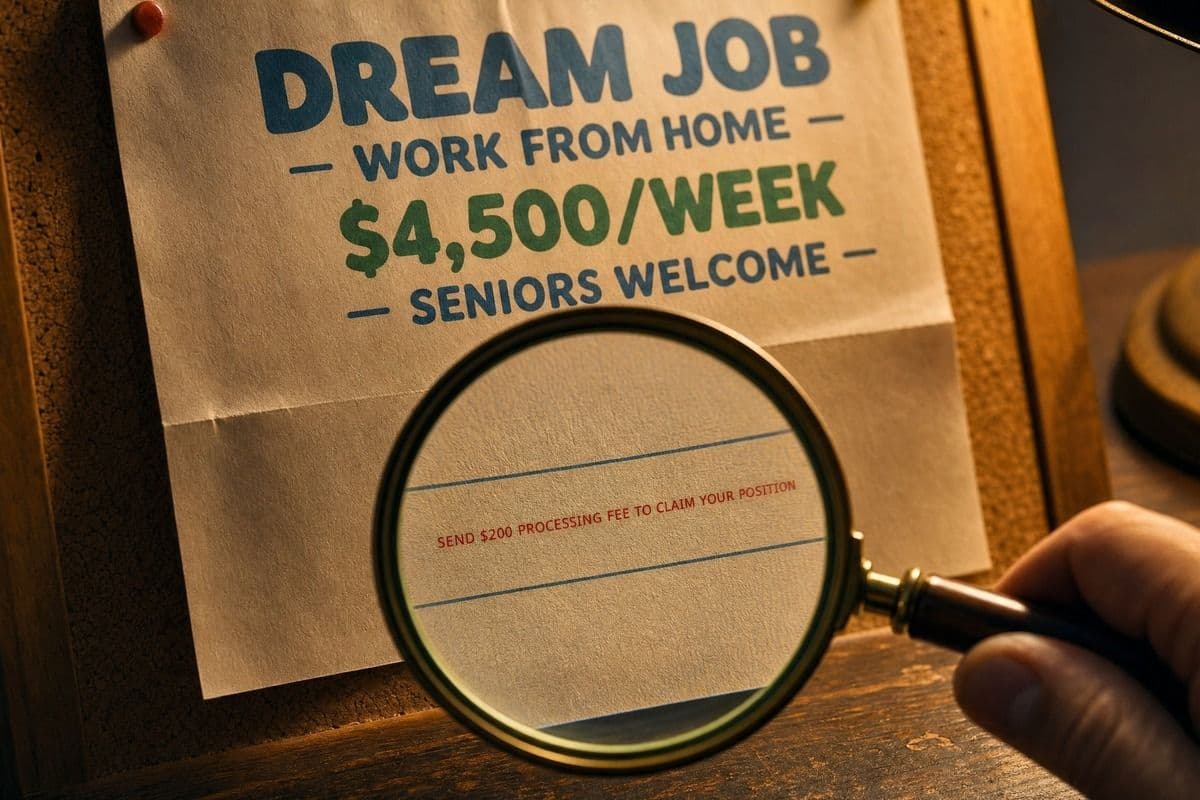 DREAM JOB
— WORK FROM HOME —
$4,500/WEEK
— SENIORS WELCOME —
SEND $200 PROCESSING FEE TO CLAIM YOUR POSITION